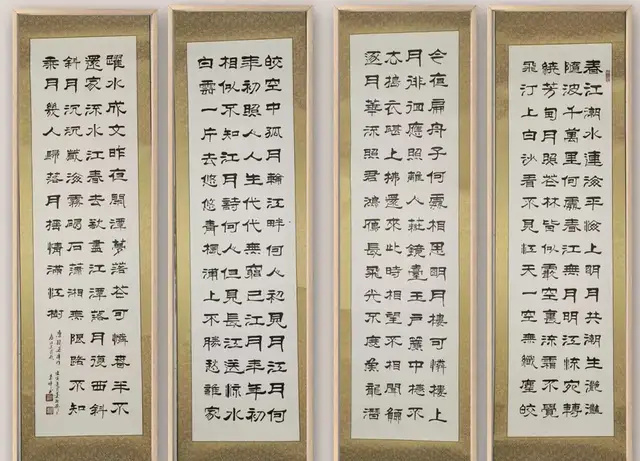 春江潮水連海平海上明月共潮生灧灧
隨波千萬里何處春江無月明江流宛轉
繞芳甸月照花林皆似霰空裏流霜不覺
飛汀上白沙看不見江天一色無纖塵皎
皎空中孤月輪江畔何人初見月江月何
年初照人人生代代無窮已江月年年初
相似不知江月待何人但見長江送流水
白雲一片去悠悠青楓浦上不勝愁誰家
今夜扁舟子何處相思明月樓可憐樓上
月徘徊應照離人妝鏡臺玉戶簾中捲不
去搗衣砧上拂還來此時相望不相聞願
逐月華流照君鴻雁長飛光不度魚龍潛
躍水成文昨夜閒潭夢落花可憐春半不
還家流水江春去欲盡江潭落月復西斜
斜月沉沉藏海霧碣石瀟湘無限路不知
乘月幾人歸落月搖情滿江樹